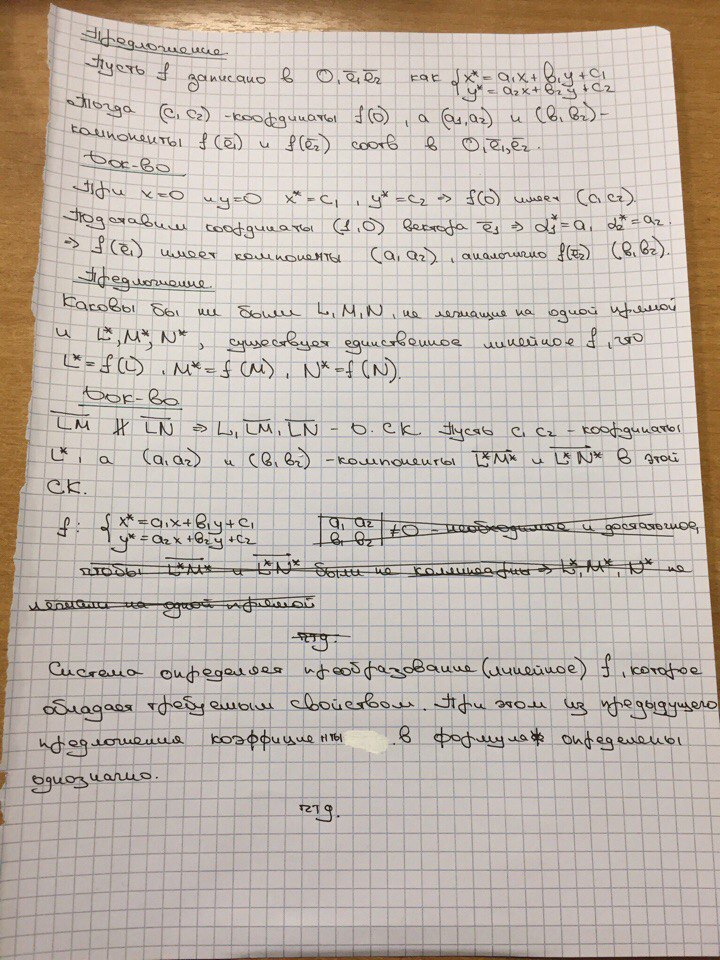 Предложение
Пусть f записано в O, e̅₁ e̅₂ как { x* = a₁x + b₁y + c₁
y* = a₂x + b₂y + c₂
Тогда (c₁ c₂) - координаты f(O), а (a₁, a₂) и (b₁ b₂) -
компоненты f(e̅₁) и f(e̅₂) соотв в O, e̅₁, e̅₂.
Док-во
При x=0 и y=0 x* = c₁, y* = c₂ ⇒ f(O) имеет (c₁ c₂).
Подставим координаты (1,0) вектора e̅₁ ⇒ α₁* = a₁ α₂* = a₂.
⇒ f(e̅₁) имеет компоненты (a₁ a₂), аналогично f(e̅₂) (b₁ b₂).
Предложение.
Каковы бы ни были L, M, N, не лежащие на одной прямой
и L*, M*, N*, существует единственное линейное f, что
L* = f(L), M* = f(M), N* = f(N).
Док-во
L̅M̅ ∦ L̅N̅ ⇒ L, L̅M̅, L̅N̅ - О. СК. Пусть c₁ c₂ - координаты
L*, а (a₁ a₂) и (b₁ b₂) - компоненты L̅*M̅* и L̅*N̅* в этой
СК.
f: { x* = a₁x + b₁y + c₁ | a₁ a₂ | ≠ 0 - необходимое и достаточное,
y* = a₂x + b₂y + c₂ | b₁ b₂ |
чтобы L̅*M̅* и L̅*N̅* были не коллинеарны ⇒ L*, M*, N* не
лежали на одной прямой
чтд.
Система определяет преобразование (линейное) f, которое
обладает требуемым свойством. При этом из предыдущего
предложения коэффициенты в формулах определены
однозначно.
чтд.